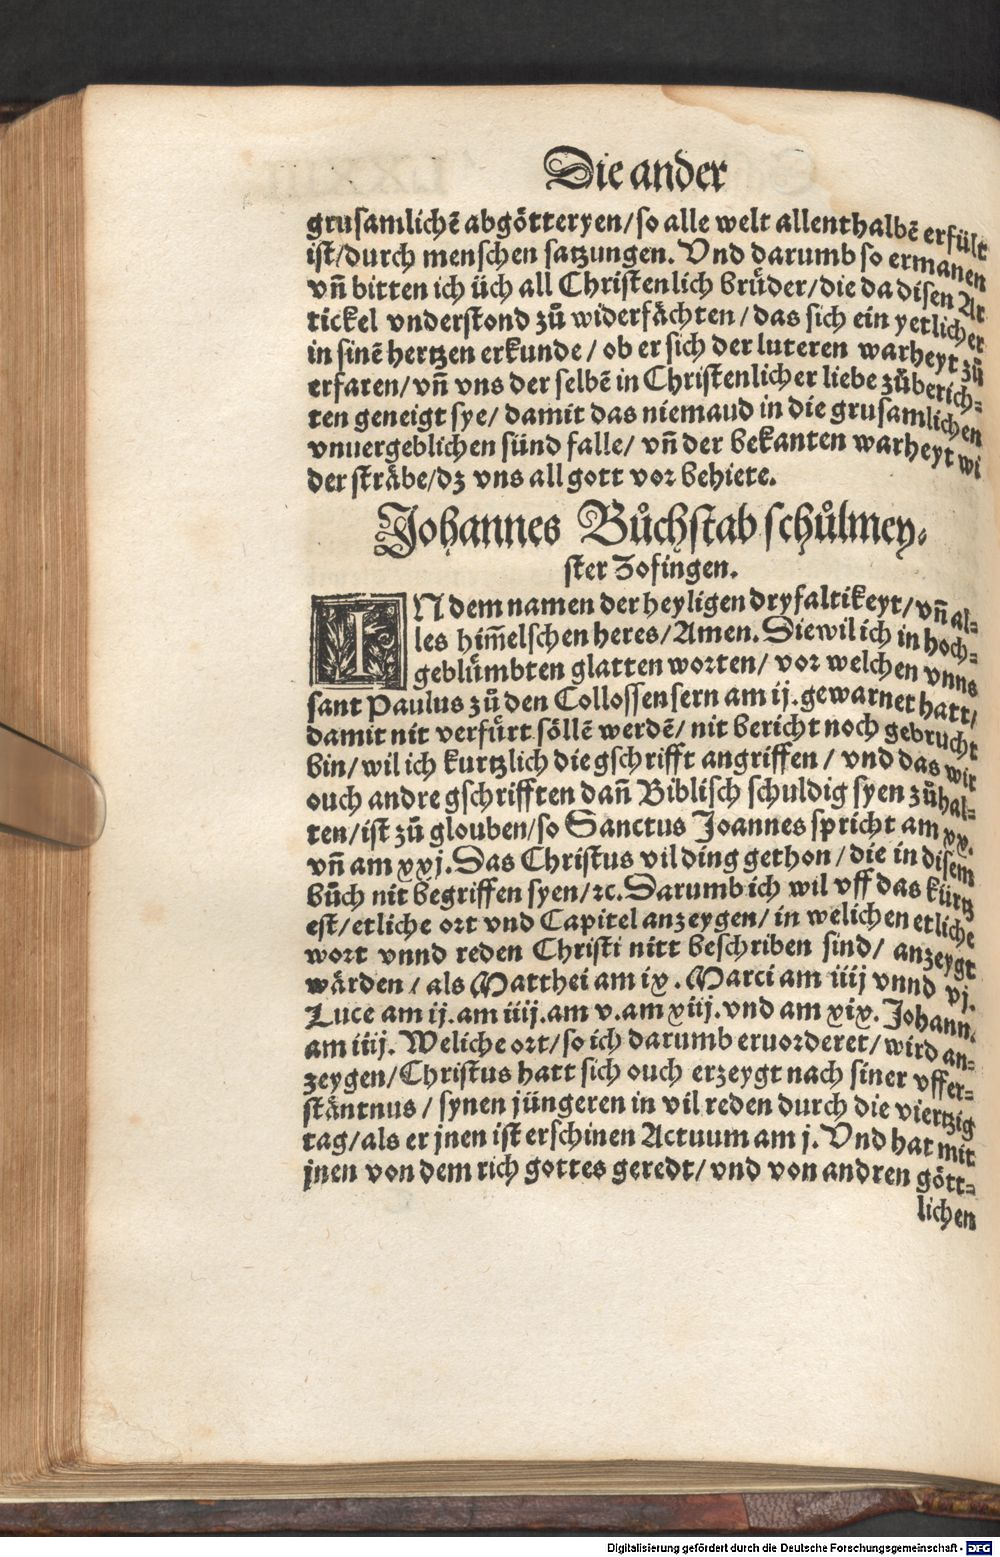 Die ander
grusamlichē abgötteryen/so alle welt allenthalbē erfült
ist/durch menschen satzungen. Vnd darumb so ermanen
vñ bitten ich üch all Christenlich brůder/die da disen Ar
tickel vnderstond zů widerfächten/das sich ein yetlicher
in sinē hertzen erkunde/ ob er sich der luteren warheyt zů
erfaren/vñ vns der selbē in Christenlicher liebe zůberich⸗
ten geneigt sye/ damit das niemaud in die grusamlichen
vnuergeblichen sünd falle/ vñ der bekanten warheyt wi
der sträbe/dz vns all gott vor behiete.
Johannes Bůchstab schůlmey⸗
ster Zofingen.
IN dem namen der heyligen dryfaltikeyt/vñ al⸗
les him̄elschen heres/Amen. Diewil ich in hoch⸗
geblümbten glatten worten/ vor welchen vnns
sant Paulus zů den Collossensern am ij.gewarnet hatt/
damit nit verfürt söllē werdē/ nit bericht noch gebrucht
bin/wil ich kurtzlich die gschrifft angriffen/ vnd das wir
ouch andre gschrifften dañ Biblisch schuldig syen zůhal⸗
ten/ist zů glouben/so Sanctus Joannes spricht am xx.
vñ am xxj.Das Christus vil ding gethon/die in disem
bůch nit begriffen syen/ꝛc.Darumb ich wil vff das kürtz
est/etliche ort vnd Capitel anzeygen/ in welichen etliche
wort vnnd reden Christi nitt beschriben sind/ anzeygt
wärden/als Matthei am ix. Marci am iiij vnnd vj.
Luce am ij.am iiij.am v.am xiij.vnd am xix. Johann.
am iiij. Weliche ort/so ich darumb eruorderet/wird an⸗
zeygen/Christus hatt sich ouch erzeygt nach siner vffer⸗
stäntnus/ synen jüngeren in vil reden durch die viertzig
tag/als er jnen ist erschinen Actuum am j. Vnd hat mit
jnen von dem rich gottes geredt/ vnd von andren gött⸗
lichen
Digitalisierung gefördert durch die Deutsche Forschungsgemeinschaft - DFG